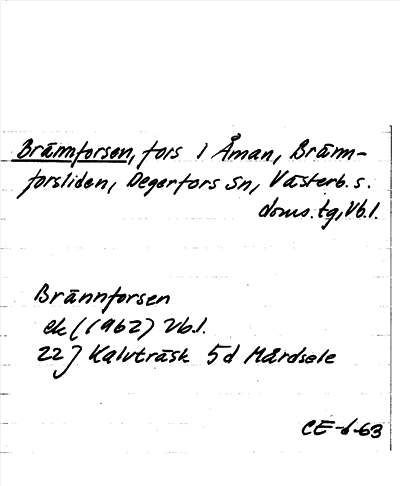 Brännforsen, fors i Åman, Bränn-
forsliden, Degerfors sn, Västerb. s.
doms. tg, Vb.l.
Brännforsen
ek (1962) Vb.l.
22J Kalvträsk 5d Mårdsele
CE-d-63